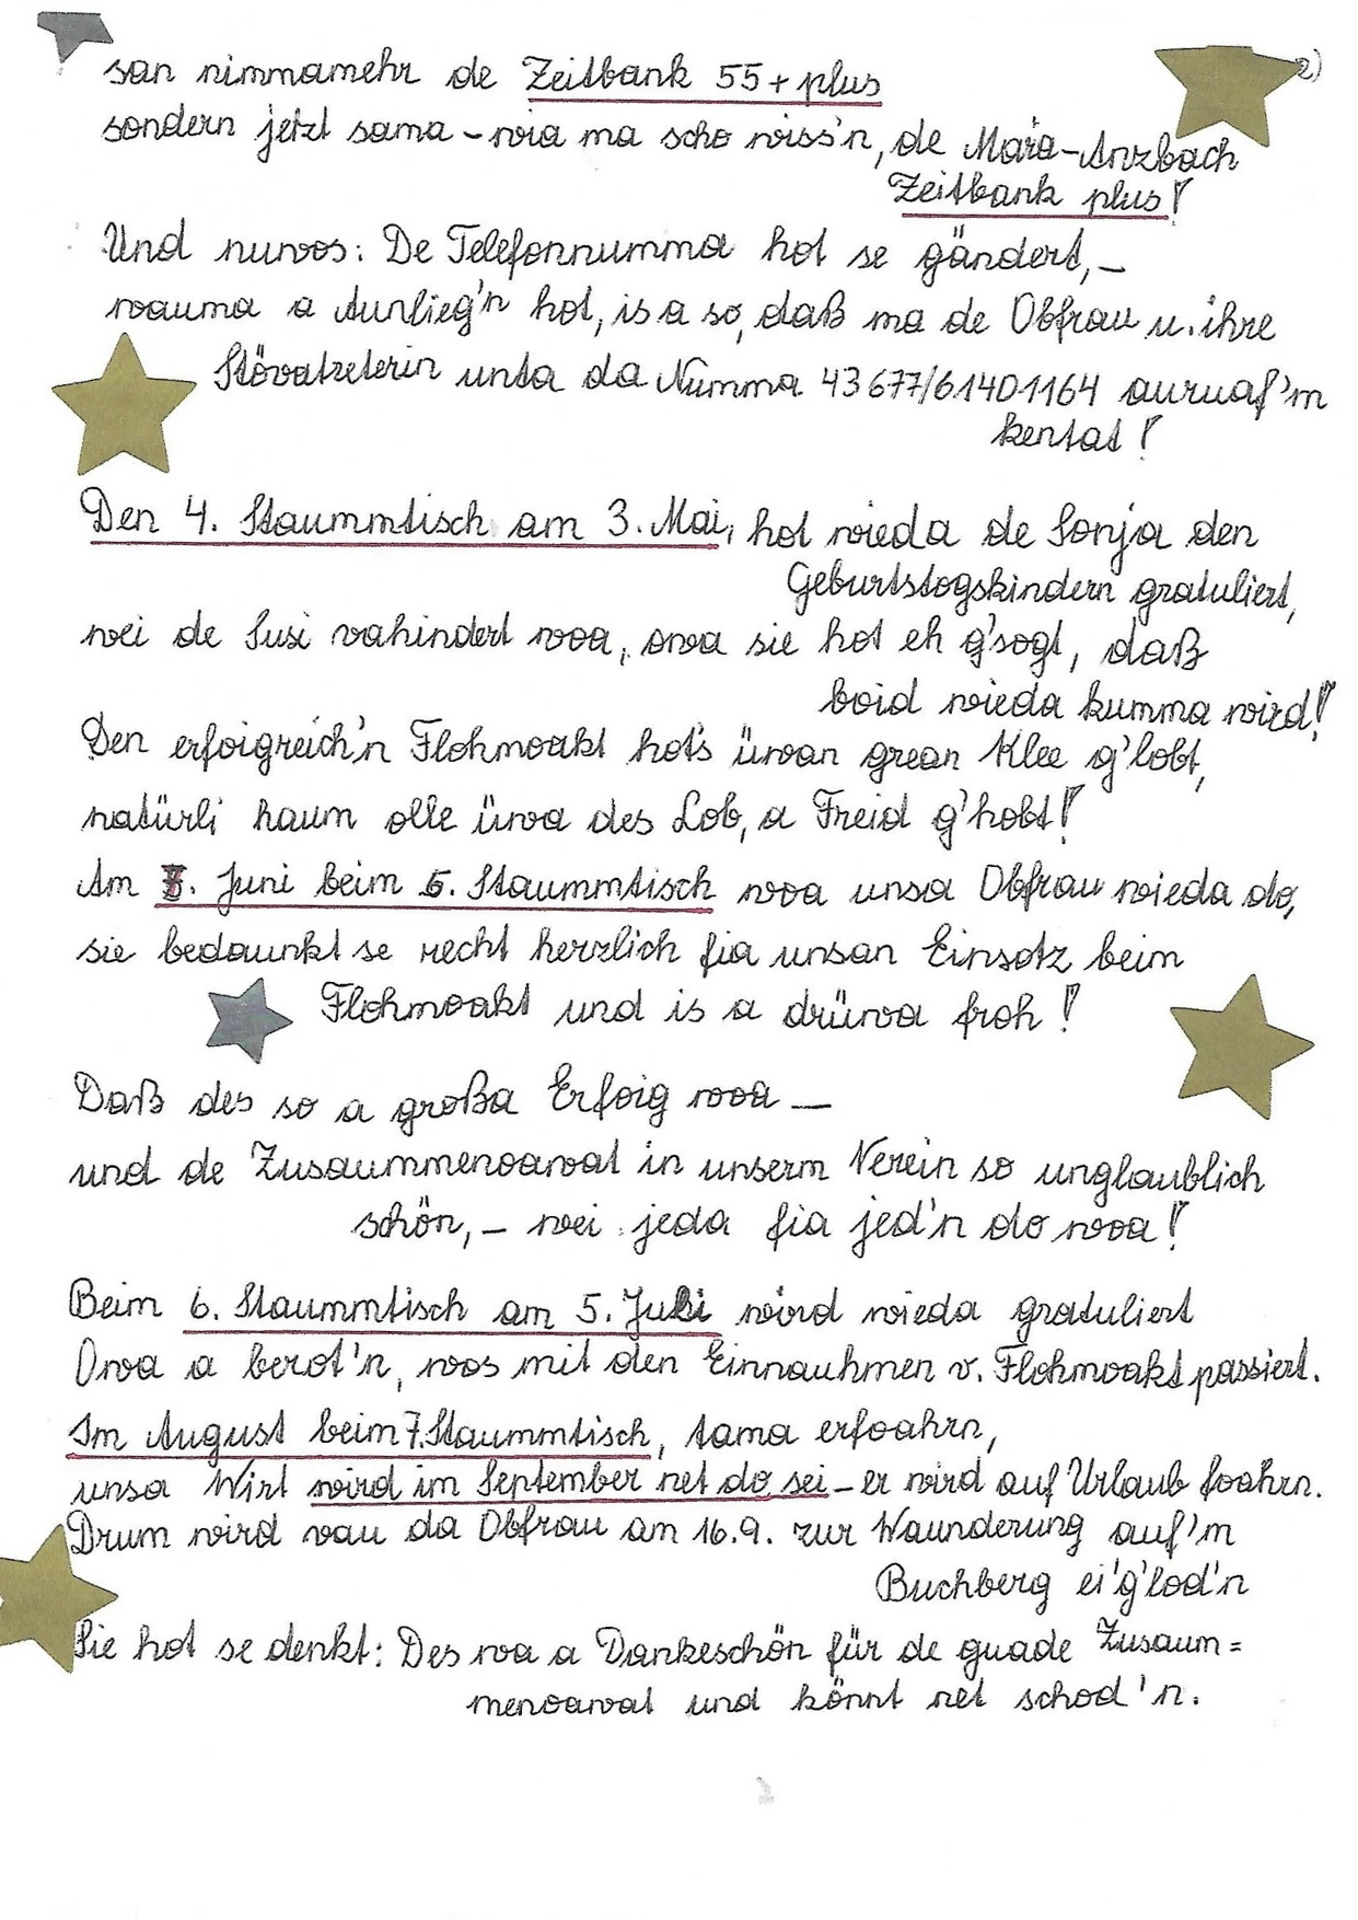 2)
san nimmamehr de Zeitbank 55+plus
sondern jetzt sama - wia ma scho wiss'n, de Maria-Anzbach
Zeitbank plus!
Und nuwos: De Telefonnumma hot se gändert,-
wauma a Aunlieg'n hot, is a so, daß ma de Obfrau u. ihre
Stövatreterin unta da Numma 43677/61401164 auruaf'm
kentat!
Den 4. Staummtisch am 3. Mai, hot wieda de Sonja den
Geburtstogskindern gratuliert,
wei de Susi vahindert woa, owa sie hot eh g'sogt, daß
boid wieda kumma wird!
Den erfoigreich'n Flohmoakt hot's üwan grean Klee g'lobt,
natürli haum olle üwa des Lob, a Freid g'hobt!
Am 7. Juni beim 5. Staummtisch woa unsa Obfrau wieda do,
sie bedaunkt se recht herzlich fia unsan Einsotz beim
Flohmoakt und is a drüwa froh!
Daß des so a großa Erfoig woa —
und de Zusaummenoawat in unserm Verein so unglaublich
schön, - wei jeda fia jed'n do woa!
Beim 6. Staummtisch am 5. Juli wird wieda gratuliert
Owa a berot'n, wos mit den Einnauhmen v. Flohmoakt passiert.
Im August beim 7. Staummtisch, tama erfoahrn,
unsa Wirt wird im September net do sei - er wird auf Urlaub foahrn.
Drum wird vau da Obfrau am 16.9. zur Waunderung auf'm
Buchberg ei'g'lod'n
Sie hot se denkt: Des wa a Dankeschön für de guade Zusaum=
menoawat und könnt net schod'n.